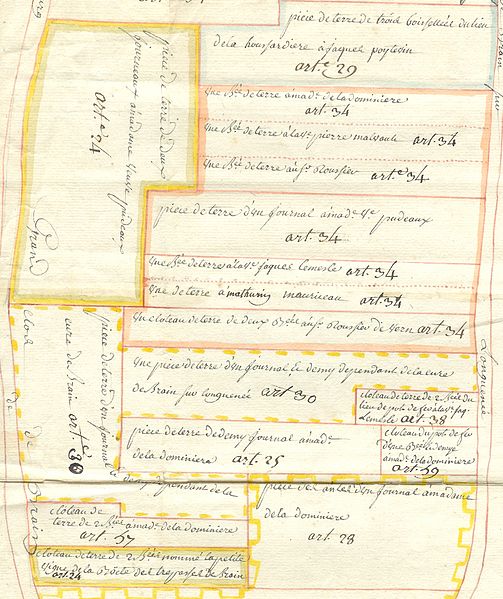 piece de terre de trois boisselées du lieu
de la houssardiere a jaques poytevin
art.e 29
piece de terre de deux
journeaux a madame veuve pudeaux
art.e 24
Grand
une B.ée de terre a mad.e de la dominiere
art. 34
une B.ée de terre a la v.e pierre art. 34
une B.ée de terre au s.r Roussier art.e 34
piece de terre d'un journal a mad.e v.e pudeaux
art. 34
une B.ée de terre a la v.e jaques lemesle art. 34
une de terre a mathurin maurieau art. 34
un cloteau de terre de deux B.ées au s.r Roussier de vern art. 34
une piece de terre d'un journal et demy dependant de la cure
de Brain sur longuenée art 30
piece de terre d'un journal
et demy dependant de la
cure de Brain art.e 30
Clos de de Brain
Longuenée
cloteau de terre de 2 B.ée du
lieu de
Lemesle art. 38
piece de terre de demy journal a mad.e
de la dominiere art. 25
cloteau du
une B.ée et demye
a mad.e de la dominiere
art. 59
cloteau de
terre de 2 B.ées a mad.e de la dominiere
art. 57
piece de d'un journal a madame
de la dominiere
art. 28
cloteau de terre de 2 B.ées nommé la petite
vigne de la de Brain
art. 24